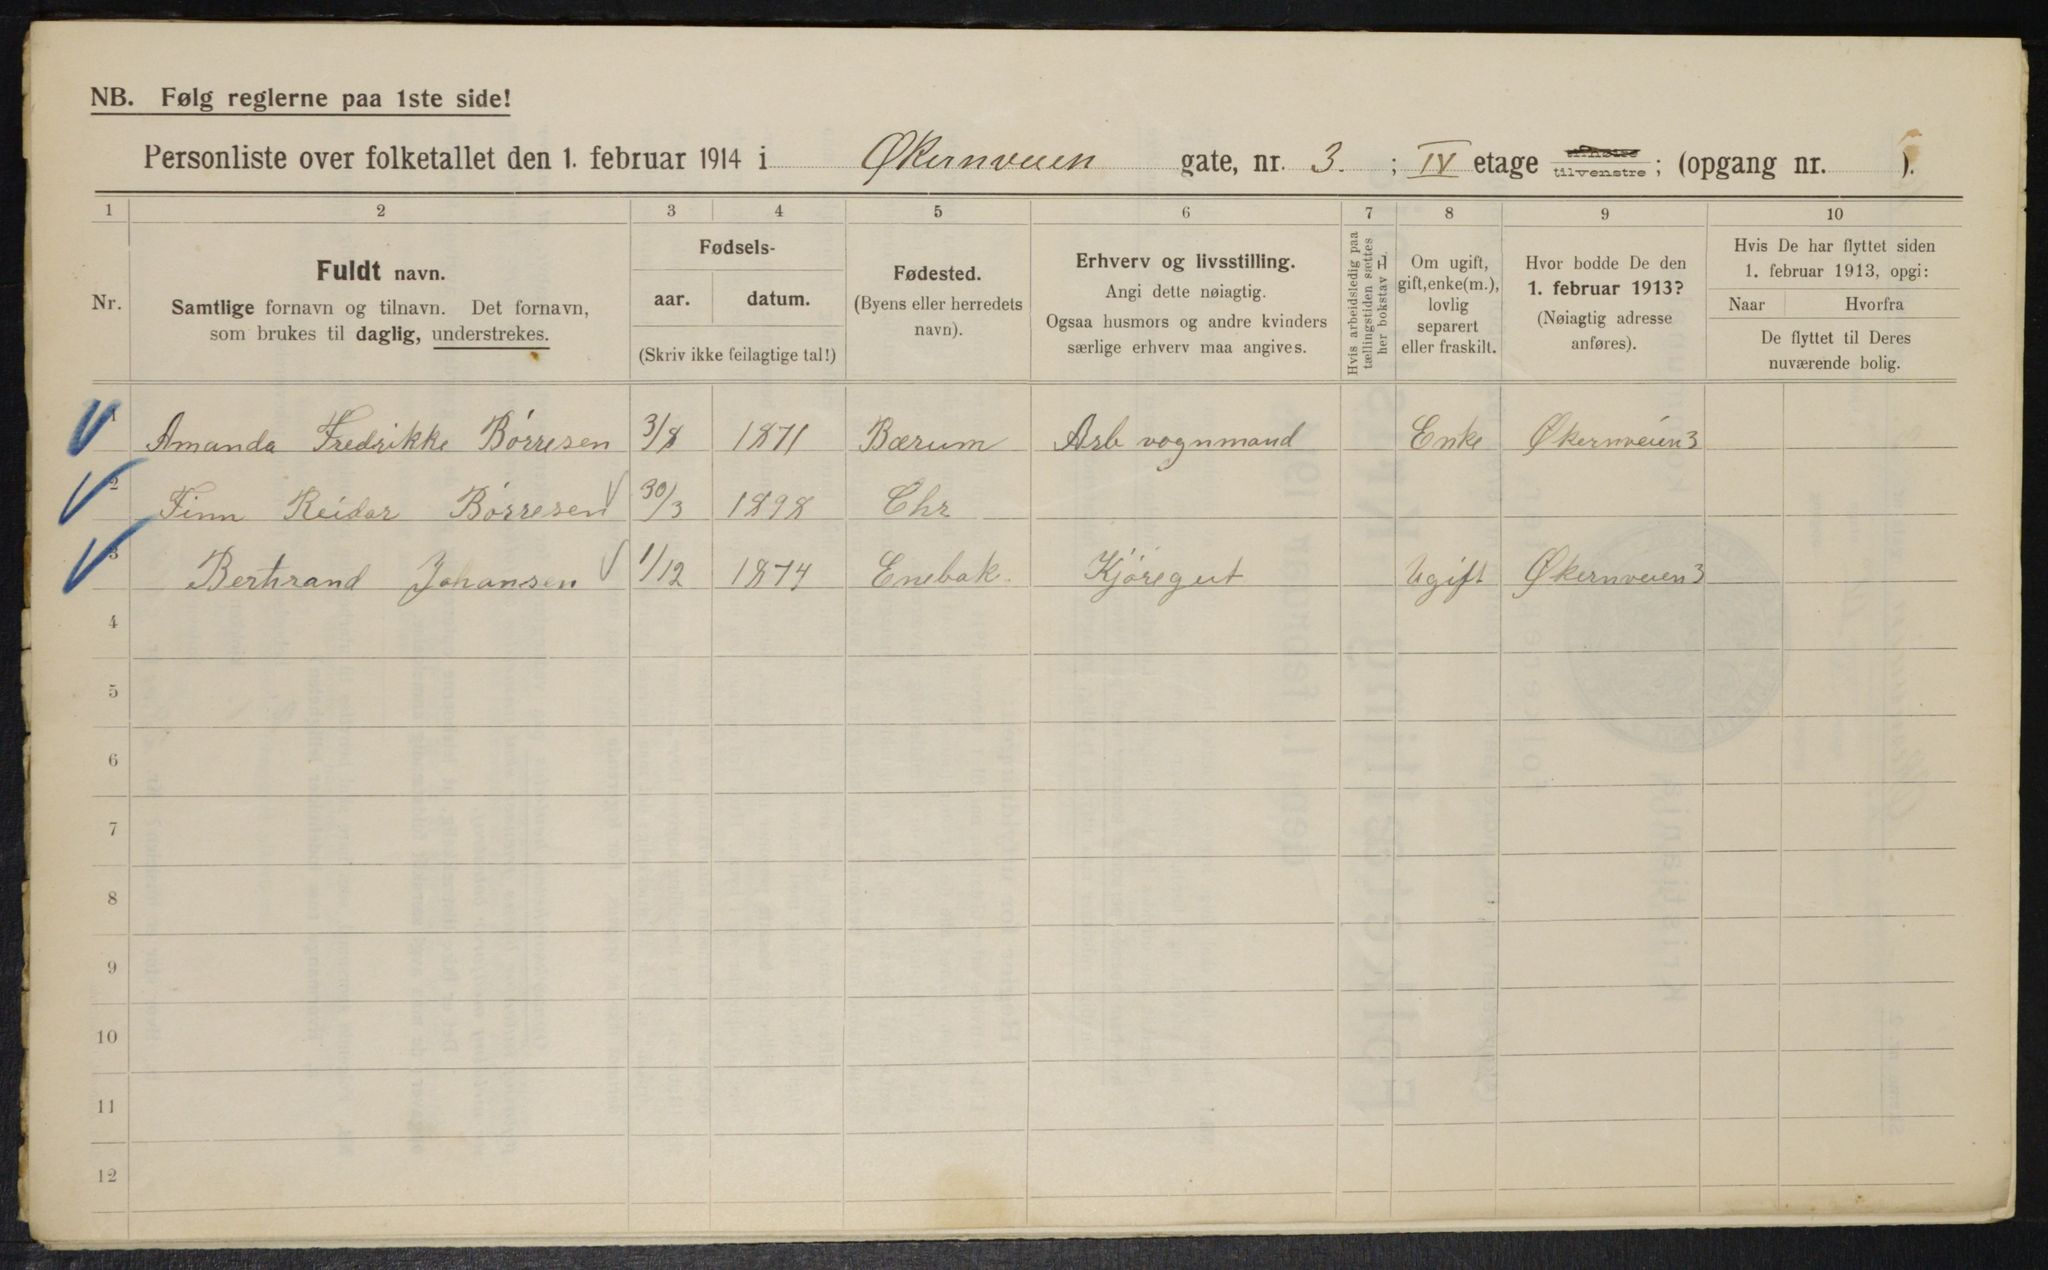 NB. Følg reglerne paa 1ste side!
Personliste over folketallet den 1. februar 1914 i Økernveien gate, nr. 3. ; IV etage tilhøire tilvenstre ; (opgang nr. ).
1 2 3 4 5 6 7 8 9 10
Nr.
Fuldt navn.
Samtlige fornavn og tilnavn. Det fornavn,
som brukes til daglig, understrekes.
Fødsels-
aar. datum.
(Skriv ikke feilagtige tal!)
Fødested.
(Byens eller herredets
navn).
Erhverv og livsstilling.
Angi dette nøiagtig.
Ogsaa husmors og andre kvinders
særlige erhverv maa angives.
Hvis arbeidsledig paa
tællingstiden sættes
her bokstav L
Om ugift,
gift, enke(m.),
lovlig
separert
eller fraskilt.
Hvor bodde De den
1. februar 1913?
(Nøiagtig adresse
anføres).
Hvis De har flyttet siden
1. februar 1913, opgi:
Naar Hvorfra
De flyttet til Deres
nuværende bolig.
1 Amanda Fredrikke Börresen 3/8 1871 Bærum Arb vognmand Enke Økernveien 3
2 Finn Reidar Börresen 30/3 1898 Chr
3 Bertrand Johansen 1/12 1874 Enebak Kjöregut Ugift Økernveien 3
4
5
6
7
8
9
10
11
12